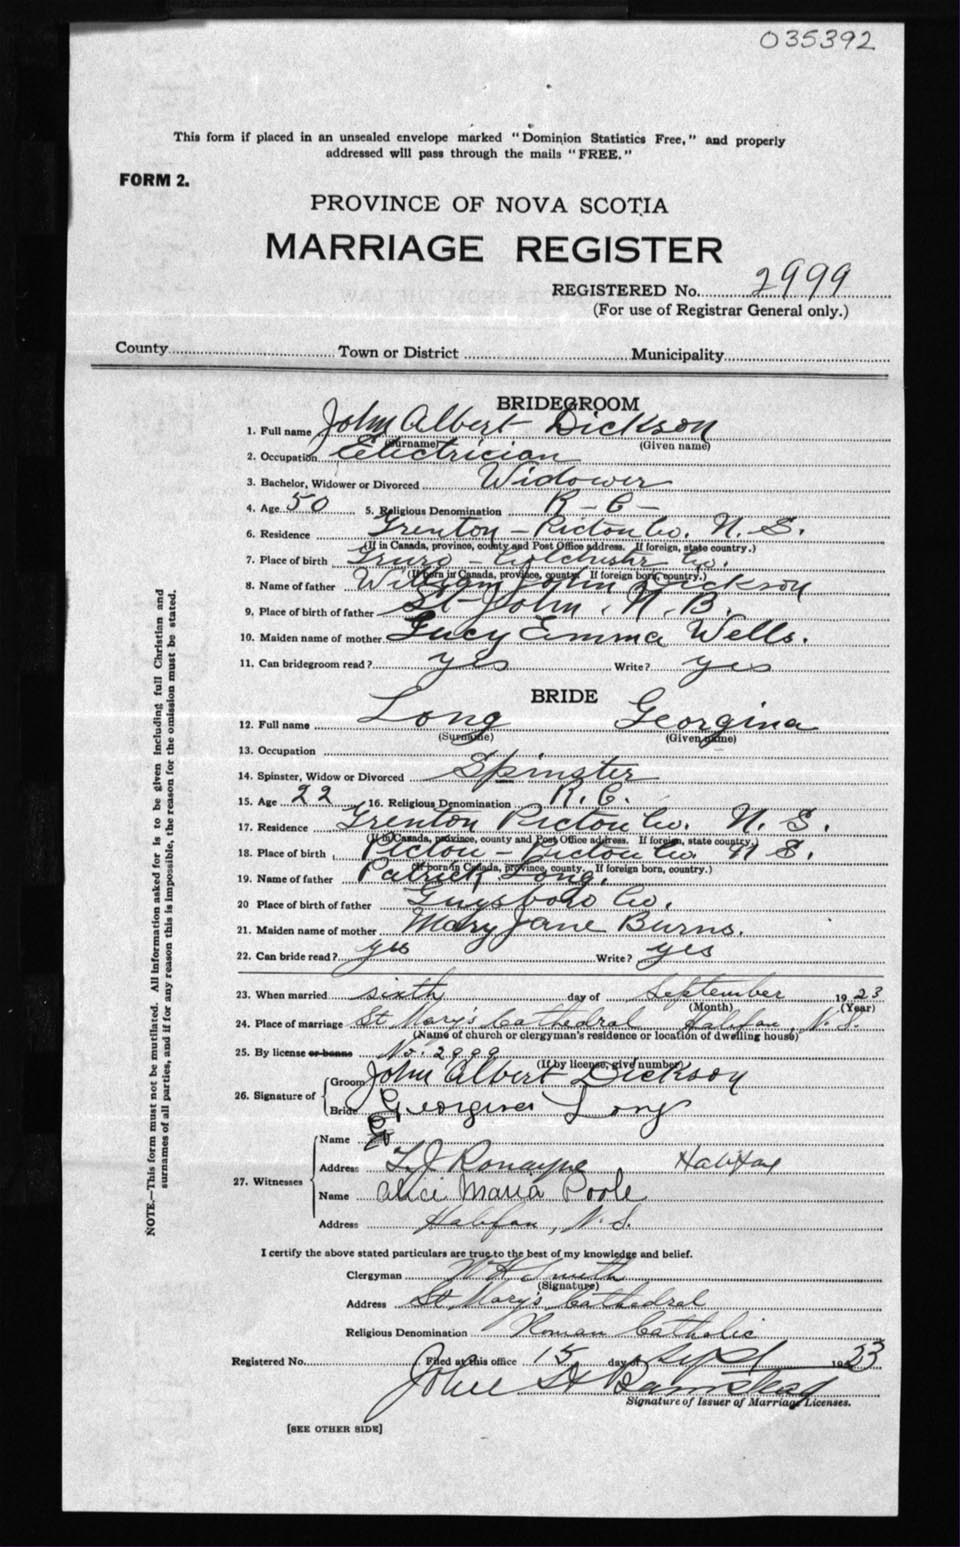 035392
This form if placed in an unsealed envelope marked "Dominion Statistics Free," and properly
addressed will pass through the mails "FREE."
FORM 2.
PROVINCE OF NOVA SCOTIA
MARRIAGE REGISTER
REGISTERED No. 2999
(For use of Registrar General only.)
County Town or District Municipality
BRIDEGROOM
1. Full name John Albert Dickson
(Surname) (Given name)
2. Occupation Electrician
3. Bachelor, Widower or Divorced Widower
4. Age 50 5. Religious Denomination R - C -
6. Residence Trenton - Pictou Co. N. S.
(If in Canada, province, county and Post Office address. If foreign, state country.)
7. Place of birth Truro - Colchester Co.
(If born in Canada, province, county. If foreign born, country.)
8. Name of father William John Dickson
9. Place of birth of father St John, N. B.
10. Maiden name of mother Lucy Emma Wells.
11. Can bridegroom read? yes Write? yes
BRIDE
12. Full name Long Georgina
(Surname) (Given name)
13. Occupation
14. Spinster, Widow or Divorced Spinster
15. Age 22 16. Religious Denomination R. C.
17. Residence Trenton Pictou Co. N. S.
(If in Canada, province, county and Post Office address. If foreign, state country.)
18. Place of birth Pictou - Pictou Co. N S.
(If born in Canada, province, county. If foreign born, country.)
19. Name of father Patrick Long.
20 Place of birth of father Guysboro Co.
21. Maiden name of mother Mary Jane Burns.
22. Can bride read? yes Write? yes
23. When married sixth day of September 1923
(Month) (Year)
24. Place of marriage St Mary's Cathedral Halifax, N. S.
(Name of church or clergyman's residence or location of dwelling house)
25. By license or banns No. 2999
(If by license, give number)
26. Signature of Groom John Albert Dickson
Bride Georgina Long
27. Witnesses
Name
Address T. J Ronayne Halifax
Name Alice Maria Poole
Address Halifax, N. S.
I certify the above stated particulars are true to the best of my knowledge and belief.
Clergyman W H Smith
(Signature)
Address St Mary's Cathedral
Religious Denomination Roman Catholic
Registered No. Filed at this office 15 day of Sept 1923
John H Barnstead
Signature of Issuer of Marriage Licenses.
[SEE OTHER SIDE]
NOTE.—This form must not be mutilated. All information asked for is to be given including full Christian and
surnames of all parties, and if for any reason this is impossible, the reason for the omission must be stated.